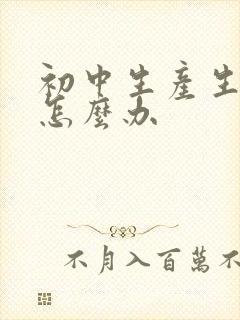 初中生產生
怎麼办
不月入百萬不